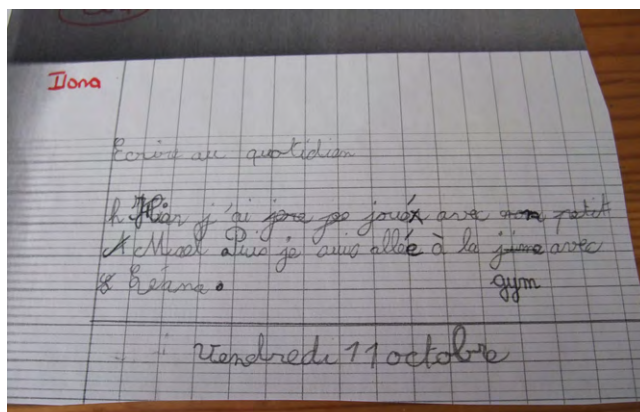 Ilona
Ecrire au quotidien
Hier j'ai joué avec mon petit
Mael Puis je suis allée à la jime avec
Léana. gym
Vendredi 11 octobre